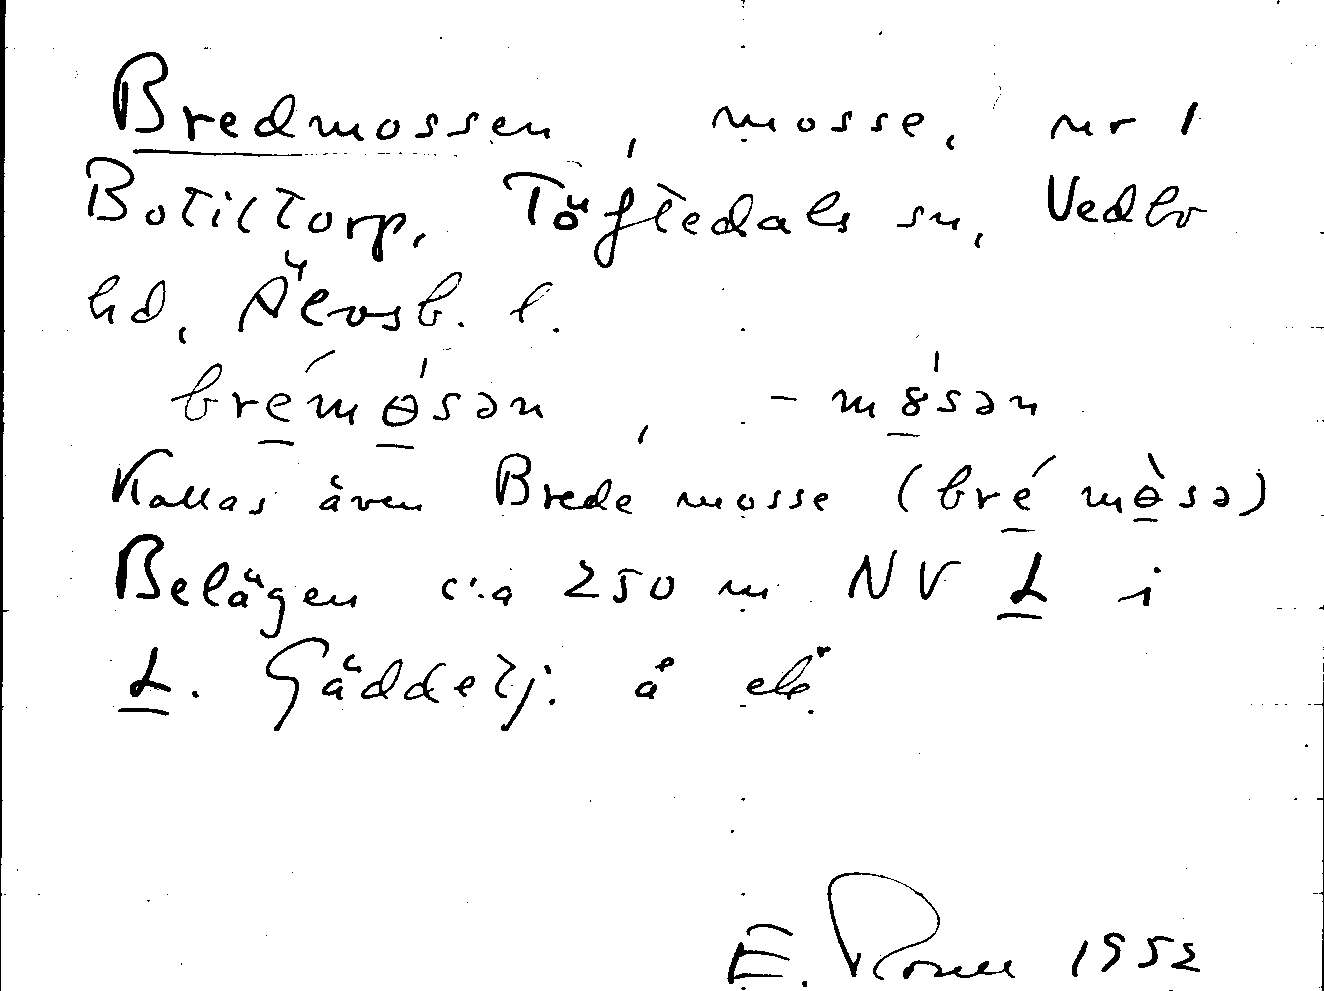 Bredmossen, mosse, nr 1
Botiltorp, Töftedals sn, Vedbo
hd, Älvsb. l.
brémɵ̀sən, -mȣ̀sən
Kallas även Brede mosse (bré mɵ̀sə)
Belägen c:a 250 m NV L i
L. Gäddetj. å ek.
E. 1952